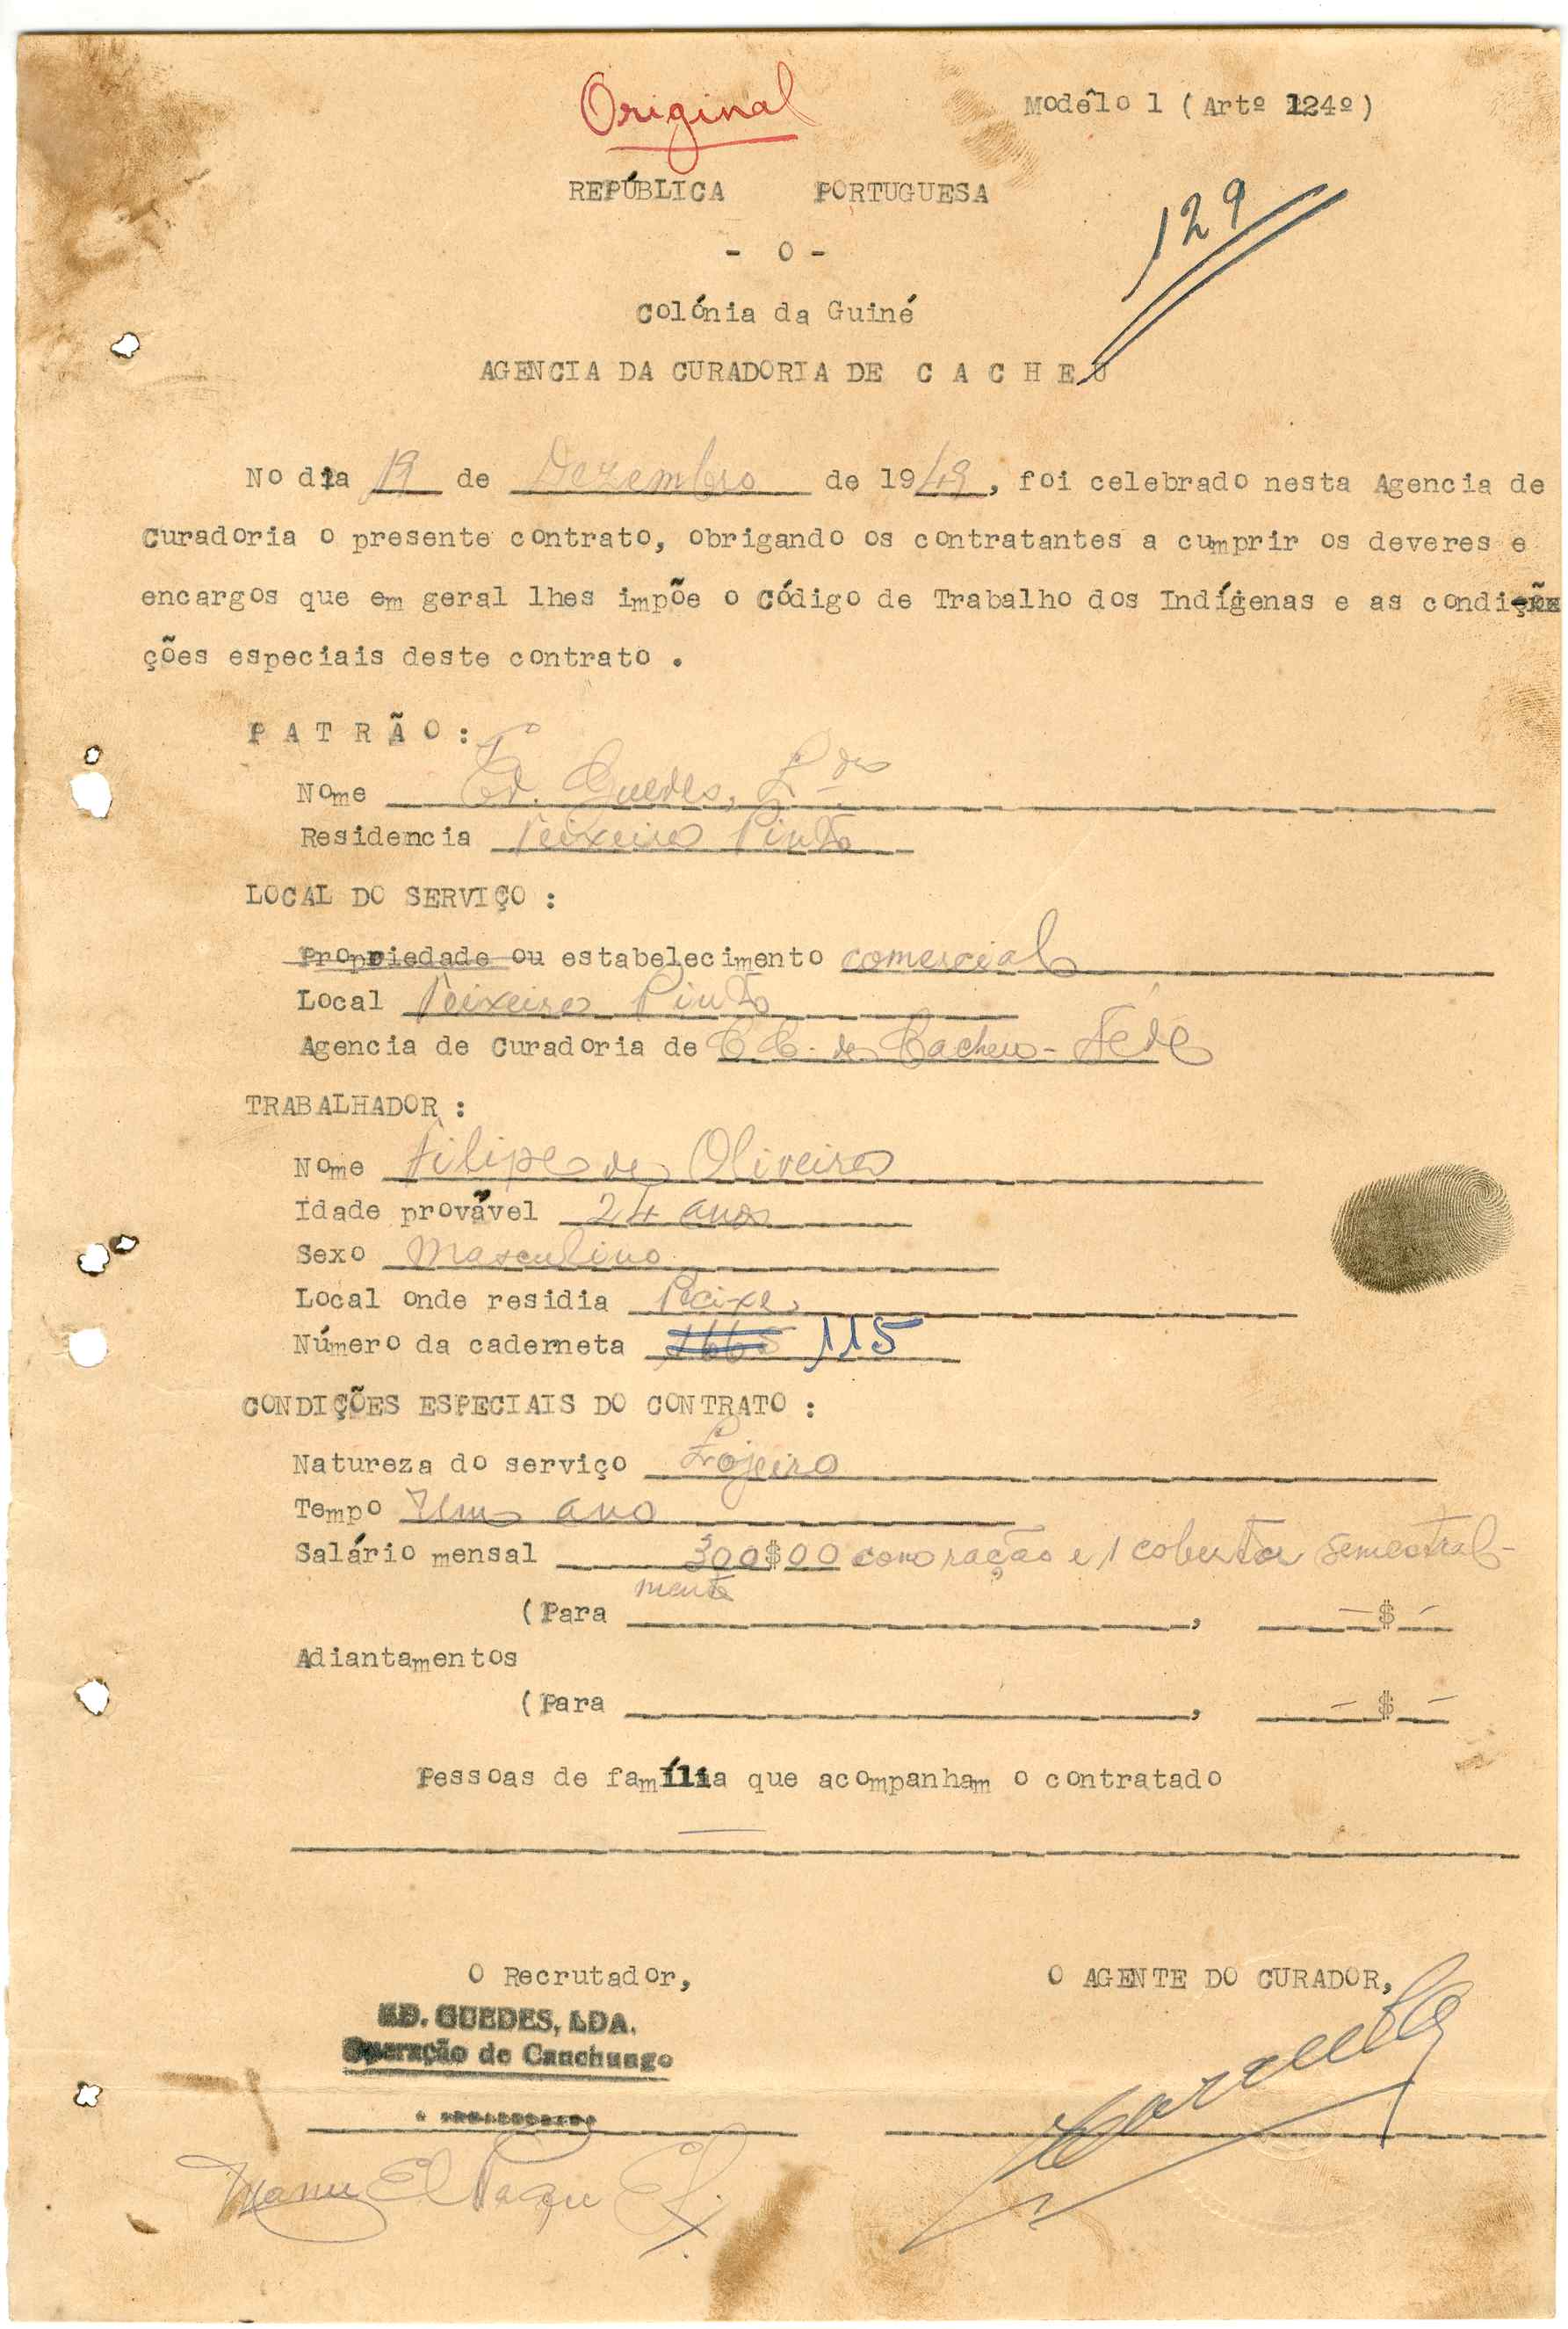 Original
Modêlo 1 (Artº 124º)
REPÚBLICA PORTUGUESA
129
- O -
Colónia da Guiné
AGENCIA DA CURADORIA DE C A C H E U
No dia 19 de Dezembro de 1949, foi celebrado nesta Agencia de
Curadoria o presente contrato, obrigando os contratantes a cumprir os deveres e
encargos que em geral lhes impõe o Código de Trabalho dos Indígenas e as condi
ções especiais deste contrato .
P A T R Ã O :
Nome Ed. Guedes, Lda
Residencia Teixeira Pinto
LOCAL DO SERVIÇO :
Propriedade ou estabelecimento comercial
Local Teixeira Pinto
Agencia de Curadoria de C. C. de Cacheu - Séde
TRABALHADOR :
Nome Filipe de Oliveira
Idade provável 24 anos
Sexo Masculino
Local onde residia Peixe
Número da caderneta 115
CONDIÇÕES ESPECIAIS DO CONTRATO :
Natureza do serviço Lojeiro
Tempo Um ano
Salário mensal 300$00 com ração e 1 coberta semestral-
mente
(Para , —$—
Adiantamentos
(Para , —$—
Pessoas de família que acompanham o contratado
O Recrutador,
O AGENTE DO CURADOR,
ED. GUEDES, LDA.
Operação de Canchungo